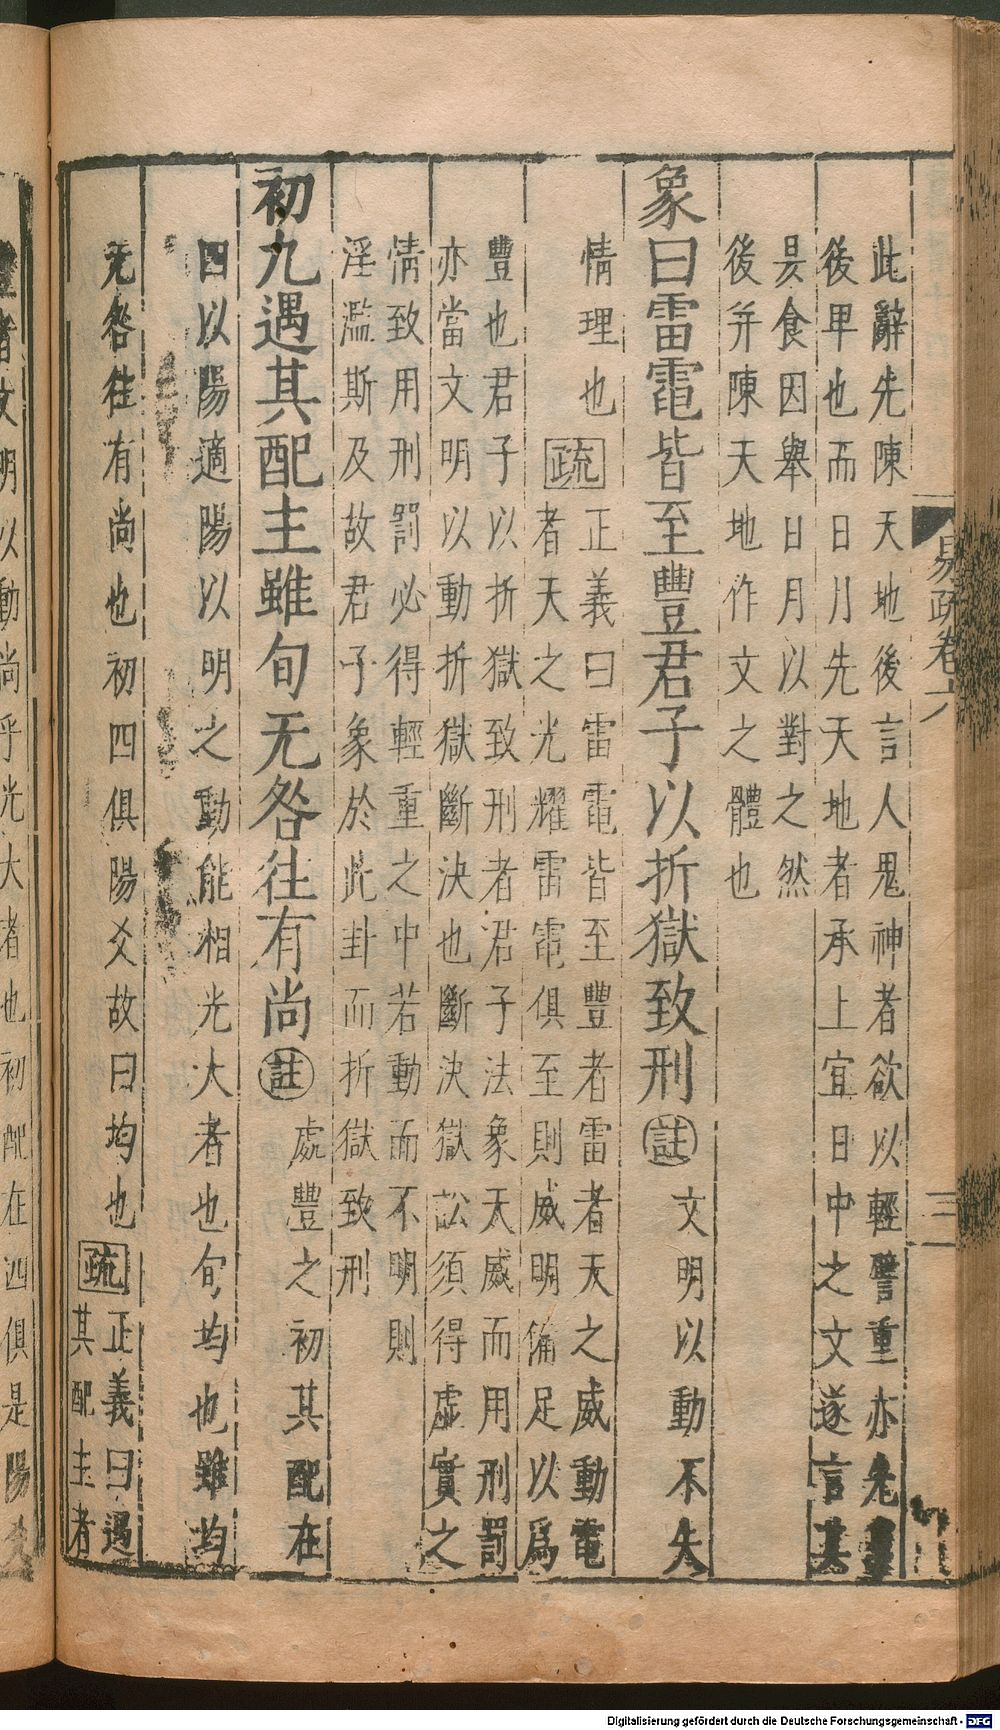 易疏卷六
三
此辭先陳天地後言人鬼神者欲以輕譬重亦先尊
後卑也而日月先天地者承上宜日中之文遂言其
昃食因舉日月以對之然
後并陳天地作文之體也
象曰雷電皆至豐君子以折獄致刑註文明以動不失
情理也疏正義曰雷電皆至豐者雷者天之威動電
者天之光耀雷電俱至則威明備足以為
豐也君子以折獄致刑者君子法象天威而用刑罰
亦當文明以動折獄斷決也斷決獄訟須得虛實之
情致用刑罰必得輕重之中若動而不明則
淫濫斯及故君子象於此卦而折獄致刑
初九遇其配主雖旬无咎往有尚註處豐之初其配在
四以陽適陽以明之動能相光大者也旬均也雖均
无咎往有尚也初四俱陽爻故曰均也疏正義曰遇
其配主者
豐者文明以動尚乎光大者也初配在四俱是陽爻
Digitalisierung gefördert durch die Deutsche Forschungsgemeinschaft - DFG